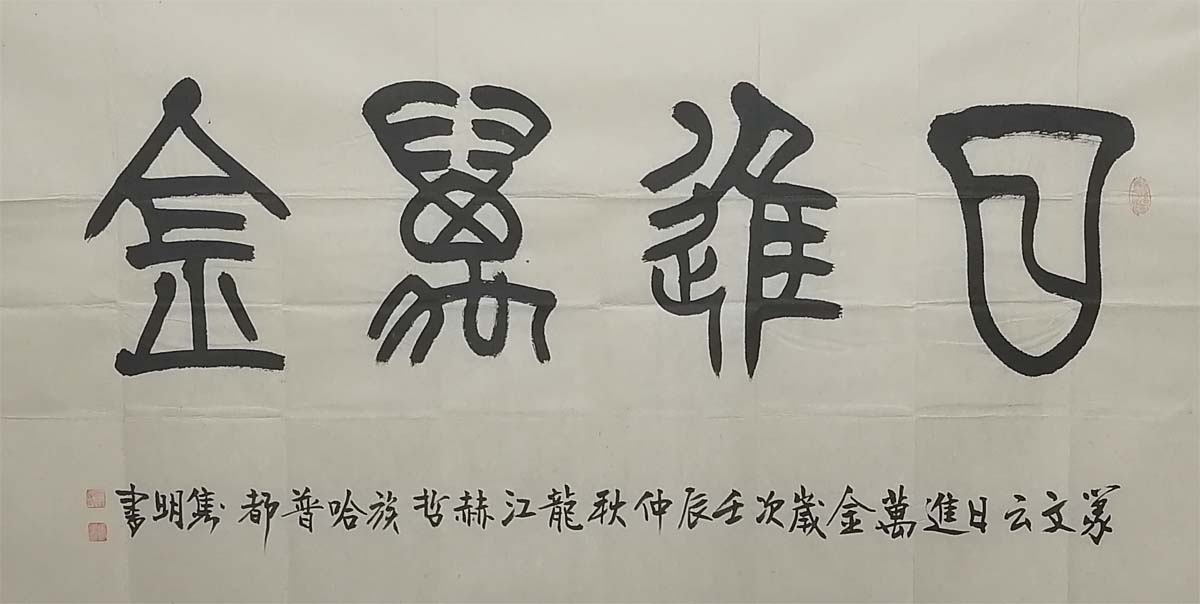 日進萬金
篆文云日進萬金歲次壬辰仲秋龍江赫哲族哈普都隽明書